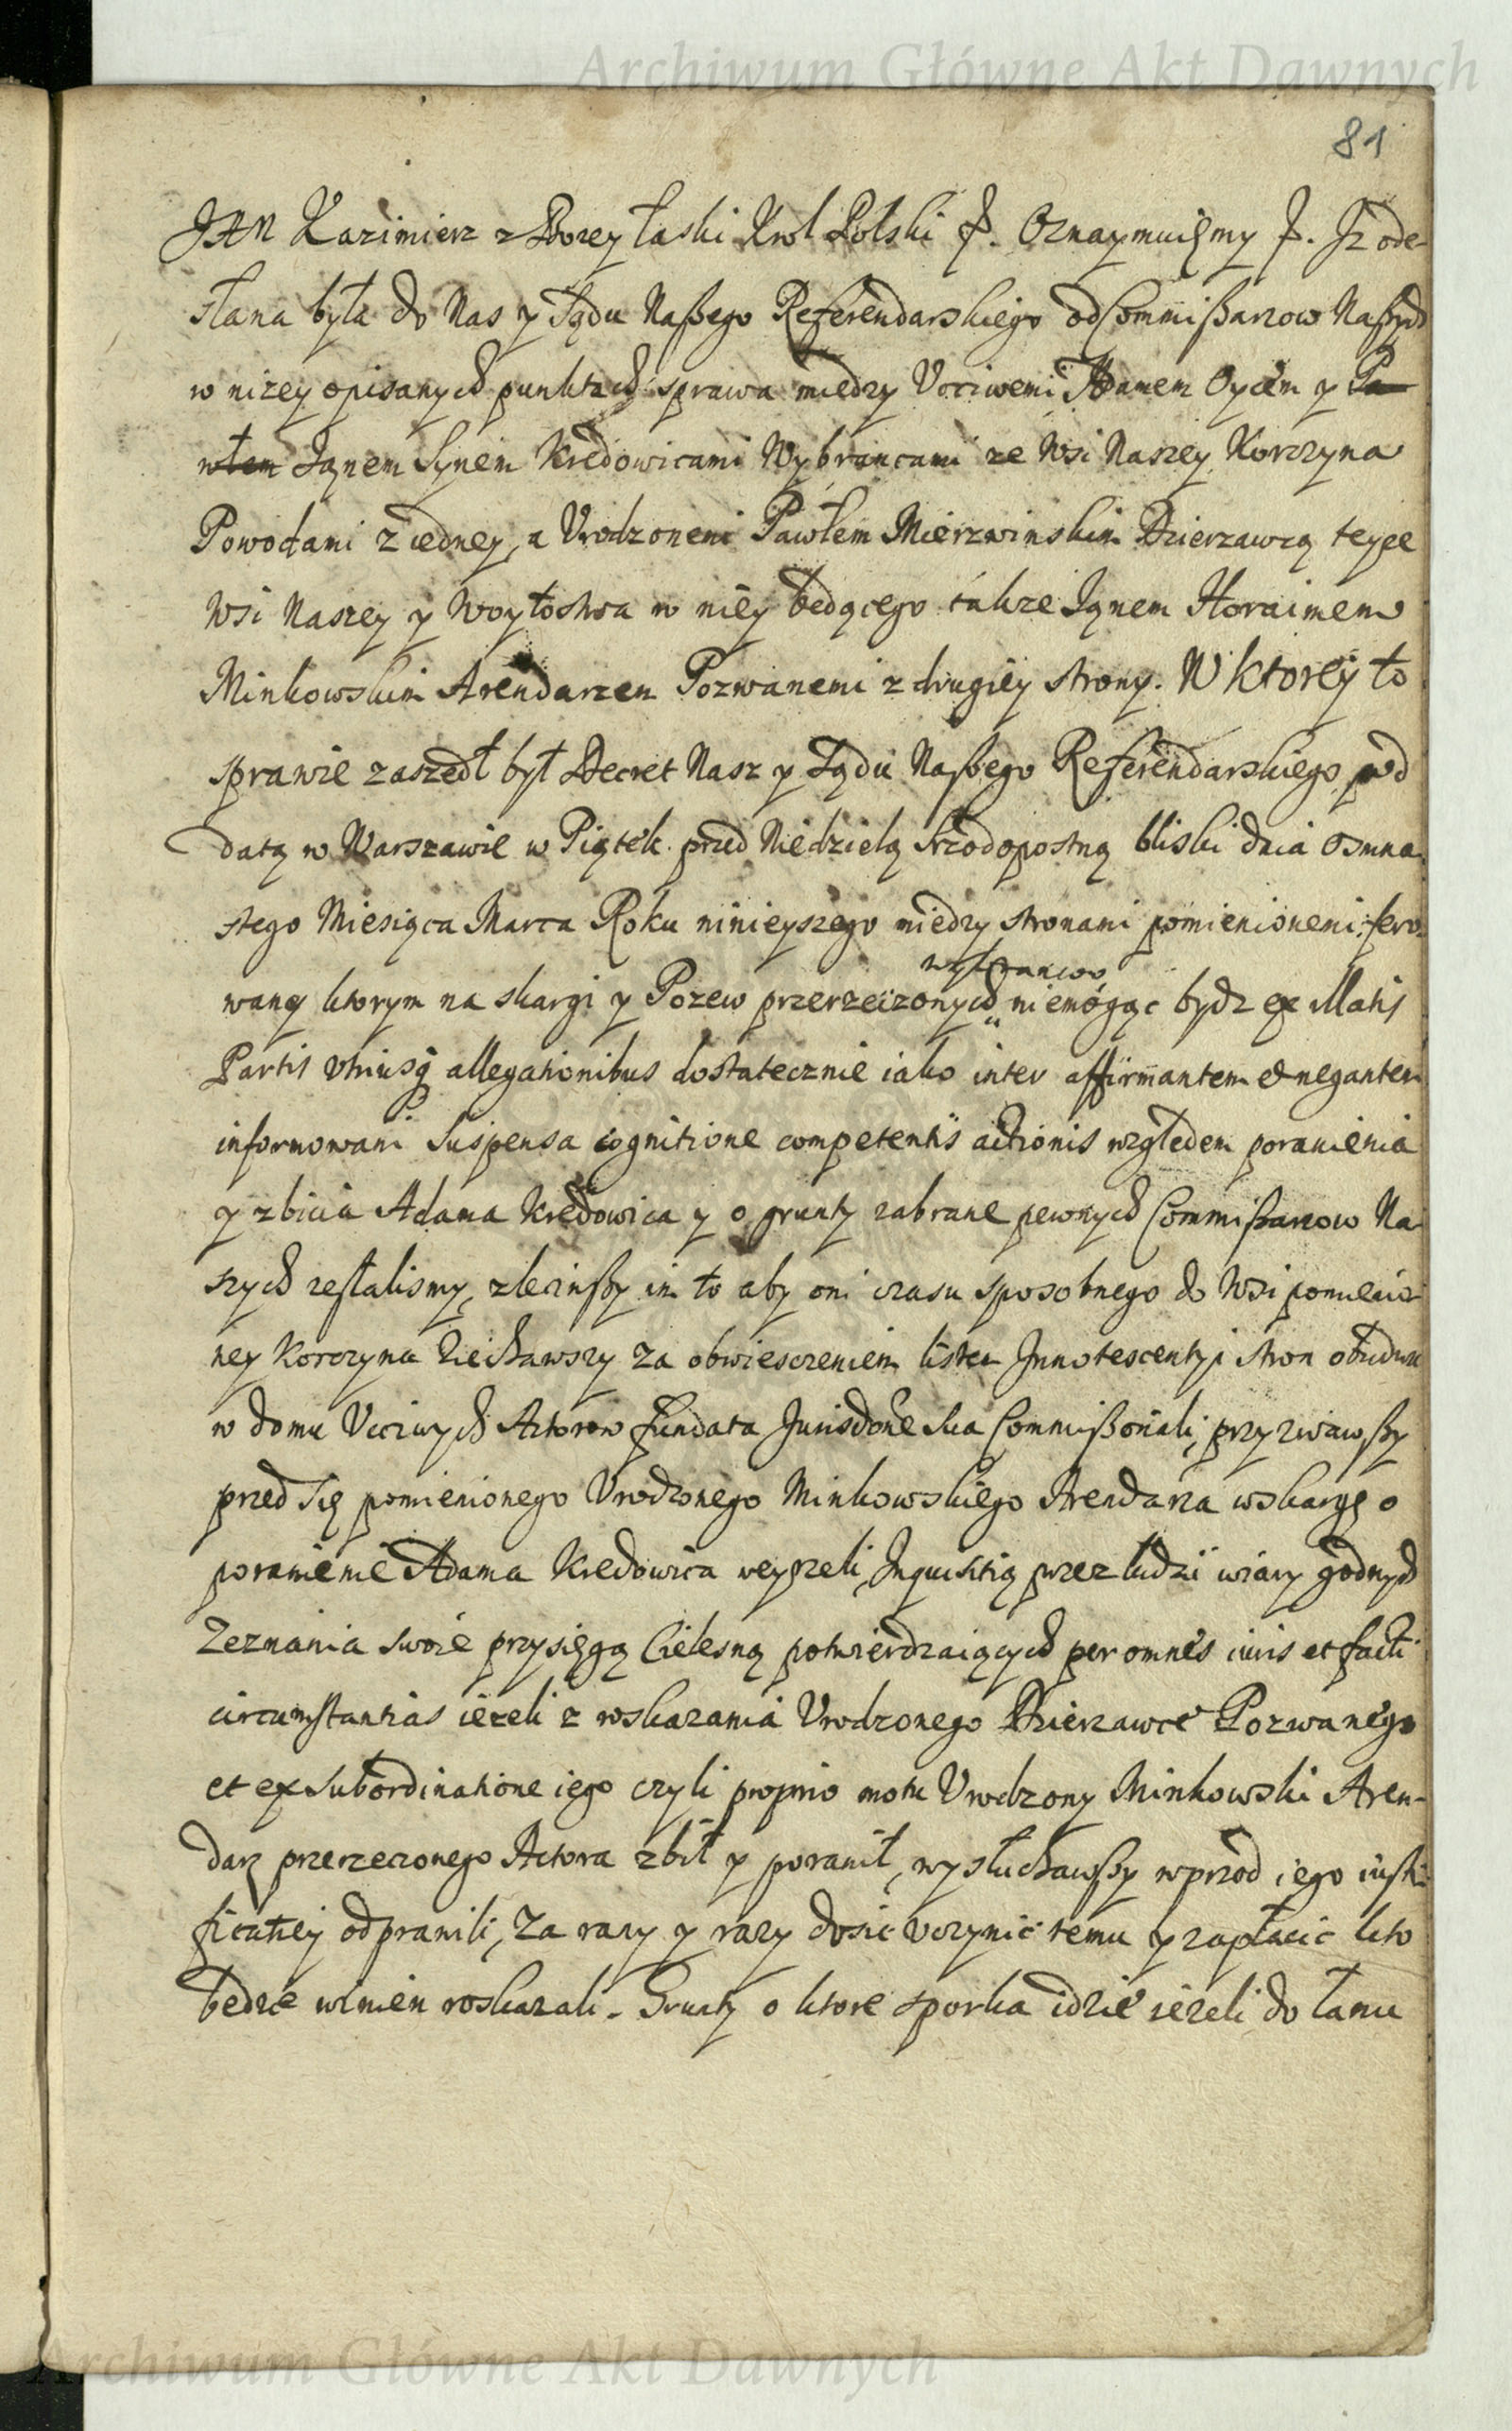 Archiwum Główne Akt Dawnych
81
JAN Kazimierz z Bozey łaski Krol Polski &. Oznaymuięmy &. Jz ode-
słana była do Nas y Sądu Naßego Referendarskiego od Commißarzow Naßych
w nizey opisanych punktach sprawa miedzy Vcciwemi Adamem Oycem y Pa-
włem Janem Synem Kredowicami Wybrancami ze Wsi Naszey Korczyna
Powodami z iedney, a Vrodzonemi Pawłem Mierzwinskim Dzierzawcą teyze
Wsi Naszey y Woytostwa w niey będącego także Janem Horaimem
Minkowskim Arendarzem Pozwanemi z drugiey strony. W ktorey to
sprawie zaszedł był Decret Nasz y Sądu Naßego Referendarskiego pod
datą w Warszawie w Piątek przed Niedzielą Srzodopostną bliski dnia osmna-
stego Miesiąca Marca Roku ninieyszego miedzy stronami pomienionemi fero-
wany ktorym na skargi y Pozew przerzeczonych niemógąc bydz ex illatis
Partis vtriusq allegationibus dostatecznie iako inter affirmantem et negantem
informowani Suspensa cognitione competentis actionis względem poranienia
y zbicia Adama Kredowica y o grunty zabrane pewnych Commißarzow Na-
szych zesłalismy, zleciwßy im to aby oni czasu sposobnego do Wsi pomienio-
ney Korczyna ziechawszy za obwiesczeniem listu Innotescentyi stron obudwu
w domu Vcciwych Actorow fundata Jurisdone Sua Commißoriali, przyzwawßy
przed się pomienionego Vrodzonego Minkowskiego Arendarza wskargę o
poranienie Adama Kredowica weyrzeli, Inquisitią przez ludzi wiary godnych
Zeznania swoie przysięgą Cielesną potwierdzaiących per omnes iuris et facti
circumstantias iezeli z roskazania Vrodzonego Dzierzawce Pozwanego
et ex Subordinatione iego czyli proprio motu Vrodzony Minkowski Aren-
darz przerzeczonego Actora zbił y poranił, wysłuchawßy wprzod iego iusti-
ficatiey odprawili, Za rany y razy dosic vczynic temu y zapłacic kto
będzie winien roskazali. Grunty o ktore sporka idzie iezeli do łanu
Archiwum Główne Akt Dawnych